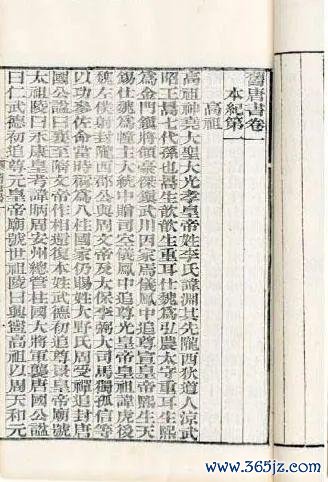 舊唐書卷
本紀第一
高祖
高祖神堯大聖大光孝皇帝姓李氏諱淵其先隴西狄道人涼武
昭王暠七代孫也暠生歆歆生重耳仕魏為弘農太守重耳生熙
為金門鎮將領豪傑鎮武川因家焉儀鳳中追尊宣皇帝熙生天
錫仕魏為幢主大統中贈司空儀鳳中追尊光皇帝皇祖諱虎後
魏左僕射封隴西郡公與周文帝及太保李弼大司馬獨孤信等
以功參佐命當時稱為八柱國家仍賜姓大野氏周受禪追封唐
國公謚曰襄至隋文帝作相還復本姓武德初追尊景皇帝廟號
太祖陵曰永康皇考諱昞周安州總管柱國大將軍襲唐國公謚
曰仁武德初追尊元皇帝廟號世祖陵曰興寧高祖以周天和元
www.365jz.com